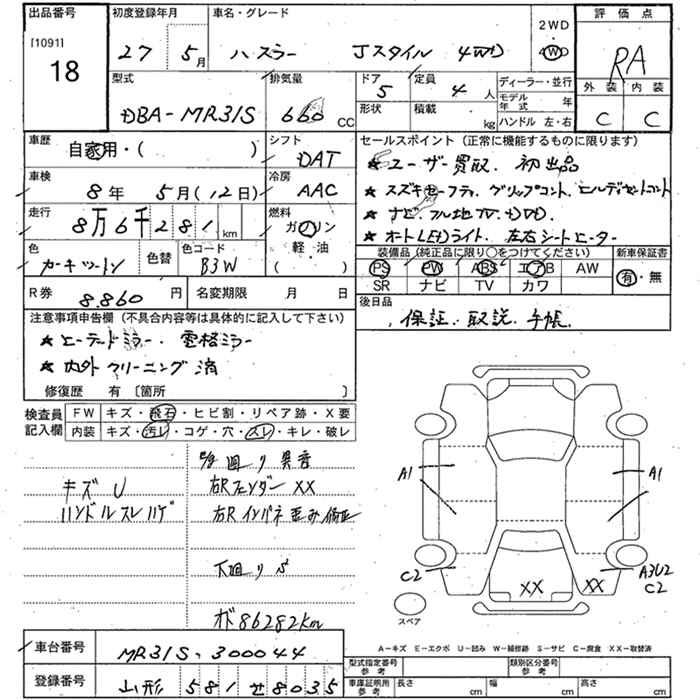 出品番号
[1091]
18
初度登録年月
27 5月
車名・グレード
ハスラー Jスタイル 4WD
2WD
4WD
評価点
RA
外装 内装
C C
型式
DBA-MR31S
排気量
660 CC
ドア
5
定員
4人
形状
積載
kg
ディーラー・並行
モデル年式 年
ハンドル 左・右
車歴
自家用・( )
シフト
DAT
車検
8年 5月(12日)
冷房
AAC
走行
8万6千281km
燃料
ガソリン
軽・油
( )
色
カーキツートン
色替
色コード
B3W
R券
8,860円
名変期限 月 日
セールスポイント(正常に機能するものに限ります)
★ ユーザー買取、初出品
★ スズキセーフティ、グリップコント、ヒルディセントコント
★ ナビ、フル地TV、4WD、
★ オートLEDライト、左右シートヒーター
装備品(純正品に限り○をつけてください)
PS PW ABS エアB AW
SR ナビ TV カワ
新車保証書
有・無
後日品
保証、取説、手帳、
注意事項申告欄(不具合内容等は具体的に記入して下さい)
★ ヒーテッドミラー、電格ミラー
★ 内外クリーニング済
修復歴 有 〔箇所 〕
検査員記入欄
FW キズ・飛石・ヒビ割・リペア跡・X要
内装 キズ・汚レ・コゲ・穴・スレ・キレ・破レ
廻り異音
キズ U
ハンドルスレハゲ
右Rフェンダー XX
右R インパネ歪み修正
下廻りS
オド 86282km
A1
A1
C2
A3U2
C2
XX
XX
スペア
A－キズ E－エクボ U－凹み W－補修跡 S－サビ C－腐食 XX－取替済
車台番号
MR31S-300044
登録番号
山形 581 せ 8035
型式指定番号
参考
類別区分番号
参考
車庫証明用
参考
長さ cm
幅 cm
高さ cm